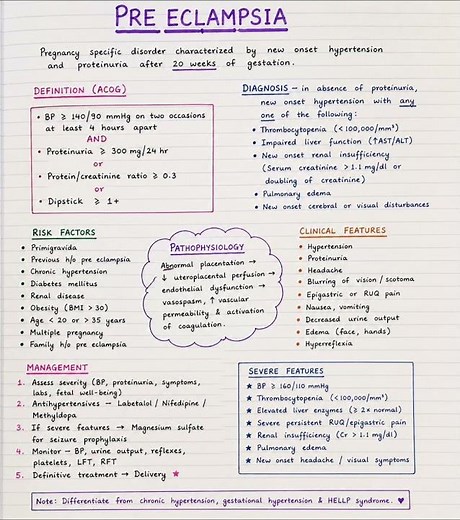 PRE ECLAMPSIA
Pregnancy specific disorder characterized by new onset hypertension
and proteinuria after 20 weeks of gestation.
DEFINITION (ACOG)
• BP ≥ 140/90 mmHg on two occasions
at least 4 hours apart
AND
• Proteinuria ≥ 300 mg/24 hr
or
• Protein/creatinine ratio ≥ 0.3
or
• Dipstick ≥ 1+
DIAGNOSIS – in absence of proteinuria,
new onset hypertension with any
one of the following:
• Thrombocytopenia (<100,000/mm³)
• Impaired liver function (↑AST/ALT)
• New onset renal insufficiency
(Serum creatinine >1.1 mg/dl or
doubling of creatinine)
• Pulmonary edema
• New onset cerebral or visual disturbances
RISK FACTORS
• Primigravida
• Previous h/o pre eclampsia
• Chronic hypertension
• Diabetes mellitus
• Renal disease
• Obesity (BMI > 30)
• Age < 20 or > 35 years
• Multiple pregnancy
• Family h/o pre eclampsia
PATHOPHYSIOLOGY
Abnormal placentation →
↓ uteroplacental perfusion →
endothelial dysfunction →
vasospasm, ↑ vascular
permeability & activation
of coagulation.
CLINICAL FEATURES
• Hypertension
• Proteinuria
• Headache
• Blurring of vision / scotoma
• Epigastric or RUQ pain
• Nausea, vomiting
• Decreased urine output
• Edema (face, hands)
• Hyperreflexia
MANAGEMENT
1. Assess severity (BP, proteinuria, symptoms,
labs, fetal well-being)
2. Antihypertensives – Labetalol / Nifedipine /
Methyldopa
3. If severe features → Magnesium sulfate
for seizure prophylaxis
4. Monitor – BP, urine output, reflexes,
platelets, LFT, RFT
5. Definitive treatment → Delivery ★
SEVERE FEATURES
★ BP ≥ 160/110 mmHg
★ Thrombocytopenia (<100,000/mm³)
★ Elevated liver enzymes (≥ 2x normal)
★ Severe persistent RUQ/epigastric pain
★ Renal insufficiency (Cr > 1.1 mg/dl)
★ Pulmonary edema
★ New onset headache / visual symptoms
Note: Differentiate from chronic hypertension, gestational hypertension & HELLP syndrome. ♥